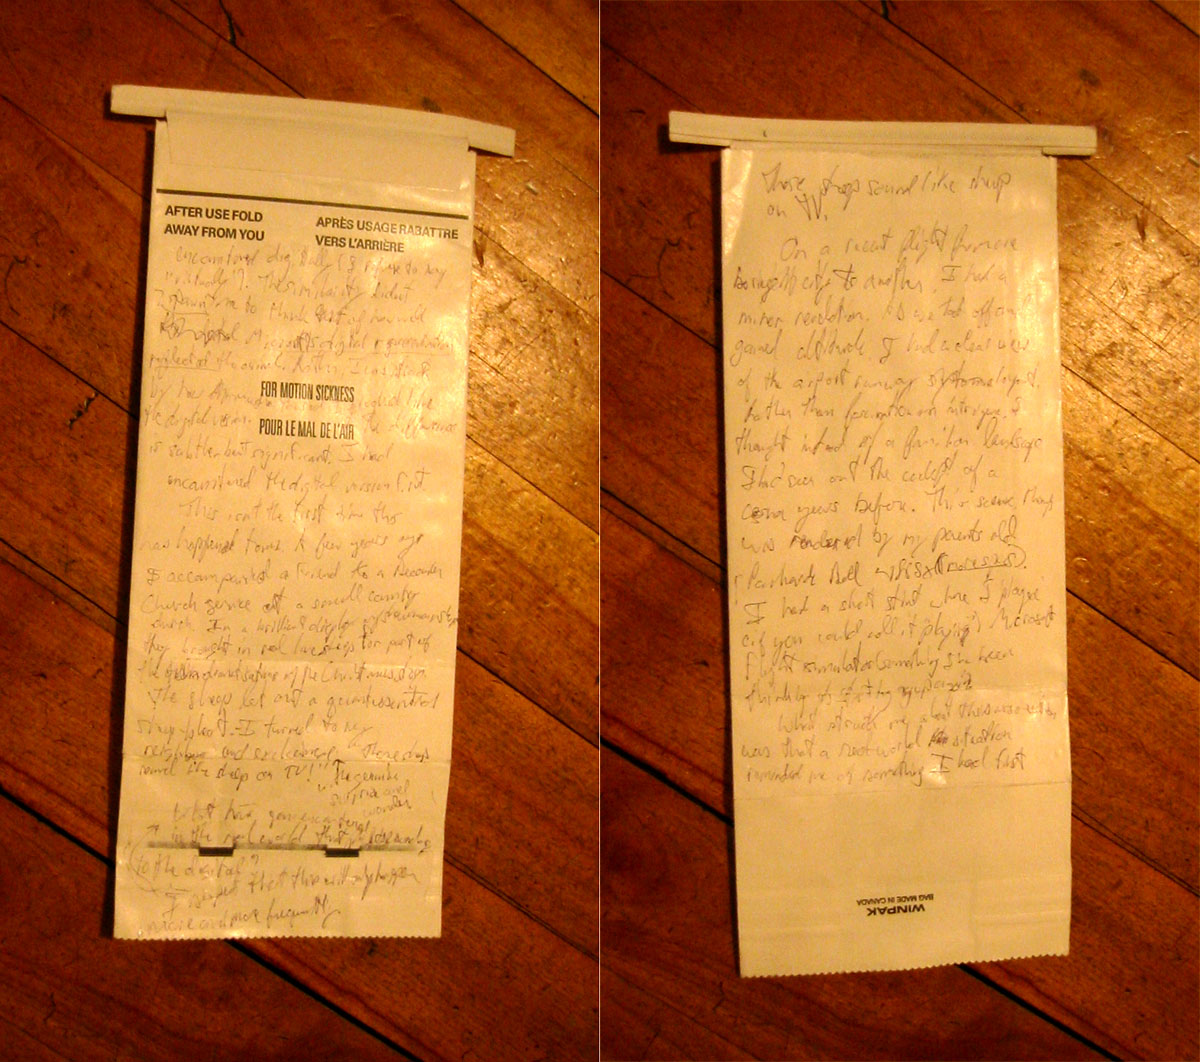 AFTER USE FOLD
AWAY FROM YOU
APRÈS USAGE RABATTRE
VERS L'ARRIÈRE
encountered digitally (I refuse to say
"virtually"). The similarity didn't
me to think first of how well
Microsoft's digital
the airport. Rather, I was struck
by how
FOR MOTION SICKNESS
looked like
the digital version. The difference
POUR LE MAL DE L'AIR
is subtle but significant. I had
encountered the digital version first.
This isn't the first time this
has happened to me. A few years ago
I accompanied a friend to a December
Church service at a small country
church. In a brilliant display of
they brought in real live sheep for part of
the dramatisation of the Christmas story.
The sheep let out a quintessential
sheep bleat. I turned to my
neighbour and exclaimed "Those sheep
sound like sheep on TV!" The genuine
surprise and
wonder
What have you encountered
in the real world that
to the digital?
I suspect that this will only happen
more and more frequently.
Those sheep sound like sheep
on TV.
On a recent flight from one
city to another, I had a
minor revelation. As we took off and
gained altitude, I had a clear view
of the airport runway system
Rather than
thought instead of a familiar landscape
I had seen out the cockpit of a
years before. This scene, though,
was rendered by my parents' old
Packard Bell
I had a short stint where I played
(if you could call it "playing") Microsoft
Flight simulator
What struck me about this
was that a real-world situation
reminded me of something I had first
WINPAK
BAG MADE IN CANADA